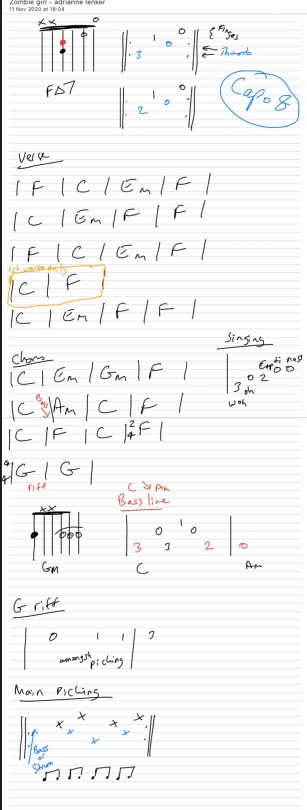 Zombie girl - adrianne lenker
11 Nov 2020 at 18:04
x x o
1 0 0 { Fingers
3 0 ← Thumb
F△7
1 0
2 0
Capo 8
Verse
| F | C | Em | F |
| C | Em | F | F |
| F | C | Em | F |
1st verse only
| C | F |
| C | Em | F | F |
Chorus
| C | Em | Gm | F |
| C Bass ↘ | Am | C | F |
| C | F | C | 2/4 F |
4/4 | G | G |
riff
Singing
0 0
0 2
3 oh
woh
C ↘ Am
Bass line
x x
1
0 0
3 3 2 | 0
Gm
C Am
G riff
| 0 1 1 | 3
amongst picking
Main Picking
x x x x
x x x
Bass or Strum